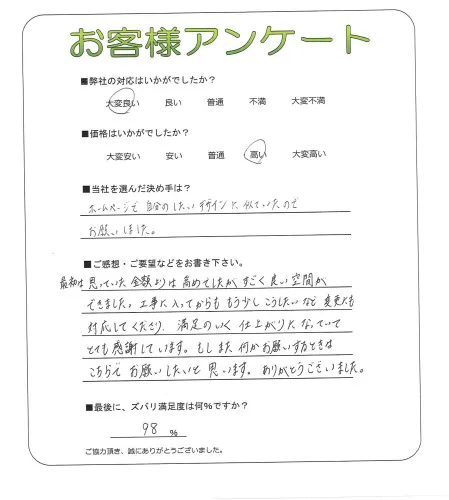 お客様アンケート
■弊社の対応はいかがでしたか？
大変良い 良い 普通 不満 大変不満
■価格はいかがでしたか？
大変安い 安い 普通 高い 大変高い
■当社を選んだ決め手は？
ホームページで 自分のしたいデザインに 似ていたので
お願いしました。
■ご感想・ご要望などをお書き下さい。
最初は思っていた金額よりは高めでしたが、すごく良い空間が
できました。工事に入ってからも もう少しこうしたいなど 変更にも
対応してくださり、満足のいく 仕上がりになっていて
とても感謝しています。もし また 何かお願いするときは
こちらで お願いしたいと 思います。ありがとうございました。
■最後に、ズバリ満足度は何%ですか？
98 %
ご協力頂き、誠にありがとうございました。